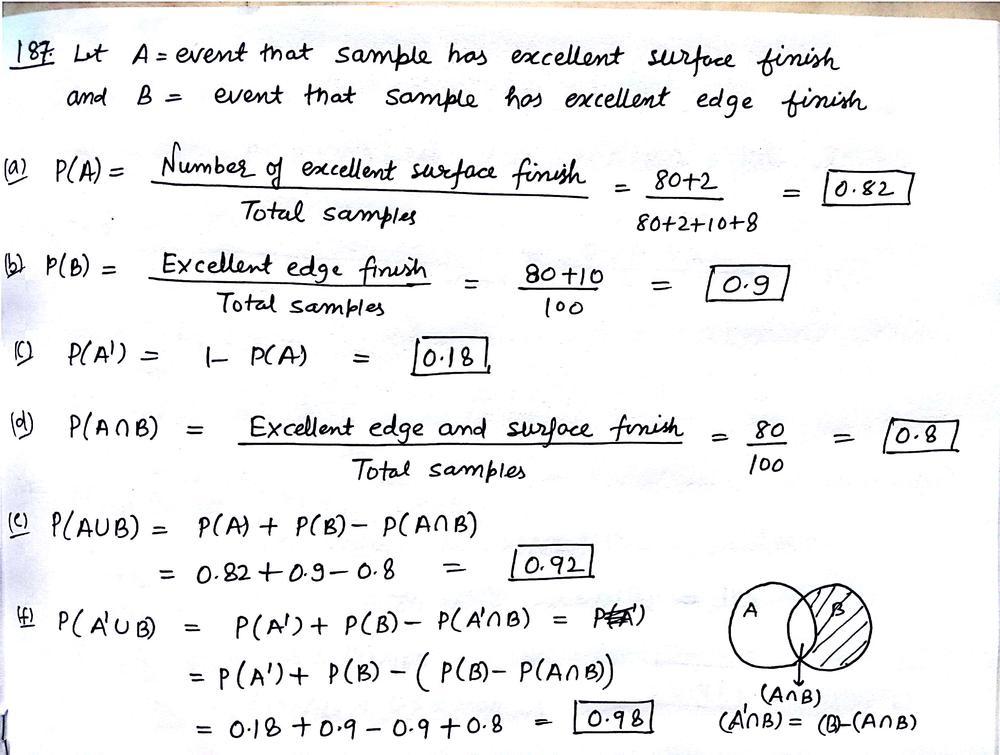 187. Let A = event that sample has excellent surface finish
and B = event that sample has excellent edge finish
(a) P(A) = Number of excellent surface finish / Total samples = 80+2 / 80+2+10+8 = 0.82
(b) P(B) = Excellent edge finish / Total samples = 80+10 / 100 = 0.9
(c) P(A') = 1- P(A) = 0.18
(d) P(A∩B) = Excellent edge and surface finish / Total samples = 80 / 100 = 0.8
(e) P(A∪B) = P(A) + P(B) - P(A∩B)
= 0.82 + 0.9 - 0.8 = 0.92
(f) P(A'∪B) = P(A') + P(B) - P(A'∩B) = P(A')
= P(A') + P(B) - ( P(B) - P(A∩B))
= 0.18 + 0.9 - 0.9 + 0.8 = 0.98
A B
(A∩B)
(A'∩B) = (B)-(A∩B)